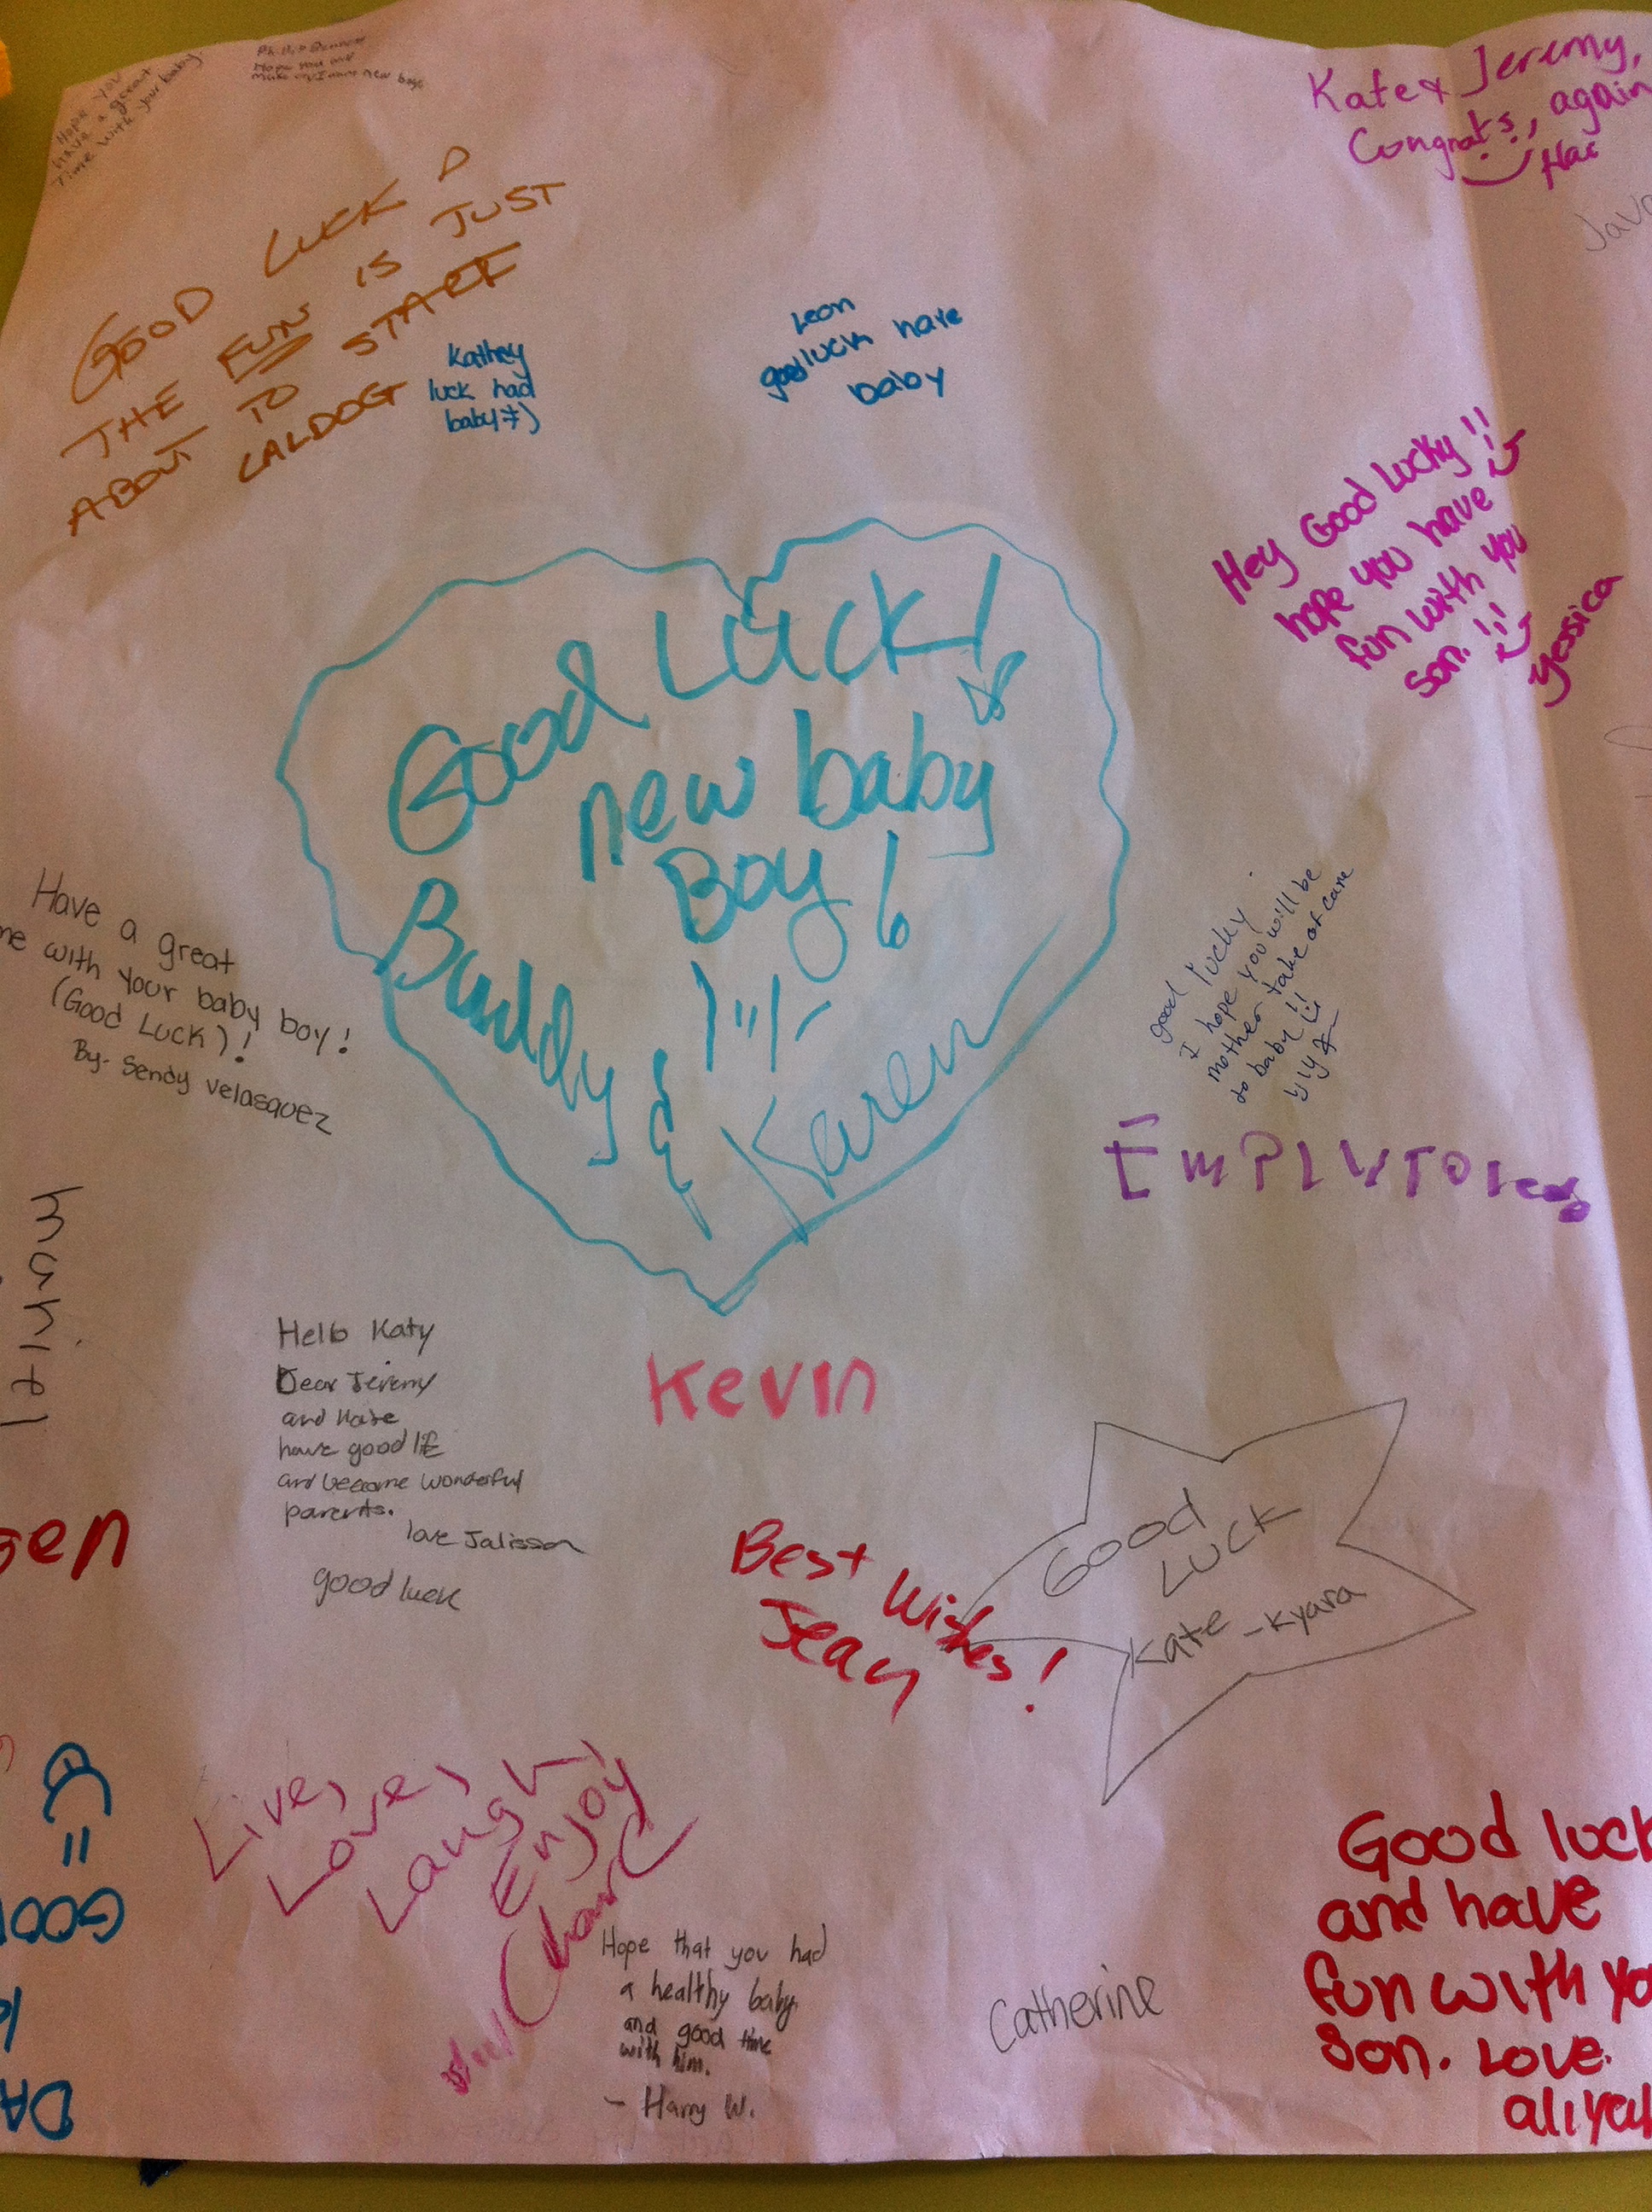 Hope you
have a great
Time with your baby
Hope you
new
Kate & Jeremy,
Congrats, again
GOOD LUCK
THE FUN IS JUST
ABOUT TO START
CALDOG
Kathey
luck had
baby
Leon
good luck have
baby
Hey Good Lucky!!
hope you have
fun with you
son.!!
yessica
Good Luck!
new baby
Boy!
Buddy &
Karen
Have a great
with your baby boy!
(Good Luck)!
By. Sendy Velasquez
good lucky.
I hope you will be
mother take of care
to baby!!
Hello Katy
Dear Jeremy
and Kate
have good life
and become wonderful
parents.
love Jalisson
good luck
Kevin
Best Wishes!
Jean
GOOD
LUCK
Kate - Kyara
Live,
Love,
Laugh,
Enjoy
Hope that you had
a healthy baby
and good time
with him.
- Harry W.
Catherine
Good luck
and have
fun with yo
son. Love.